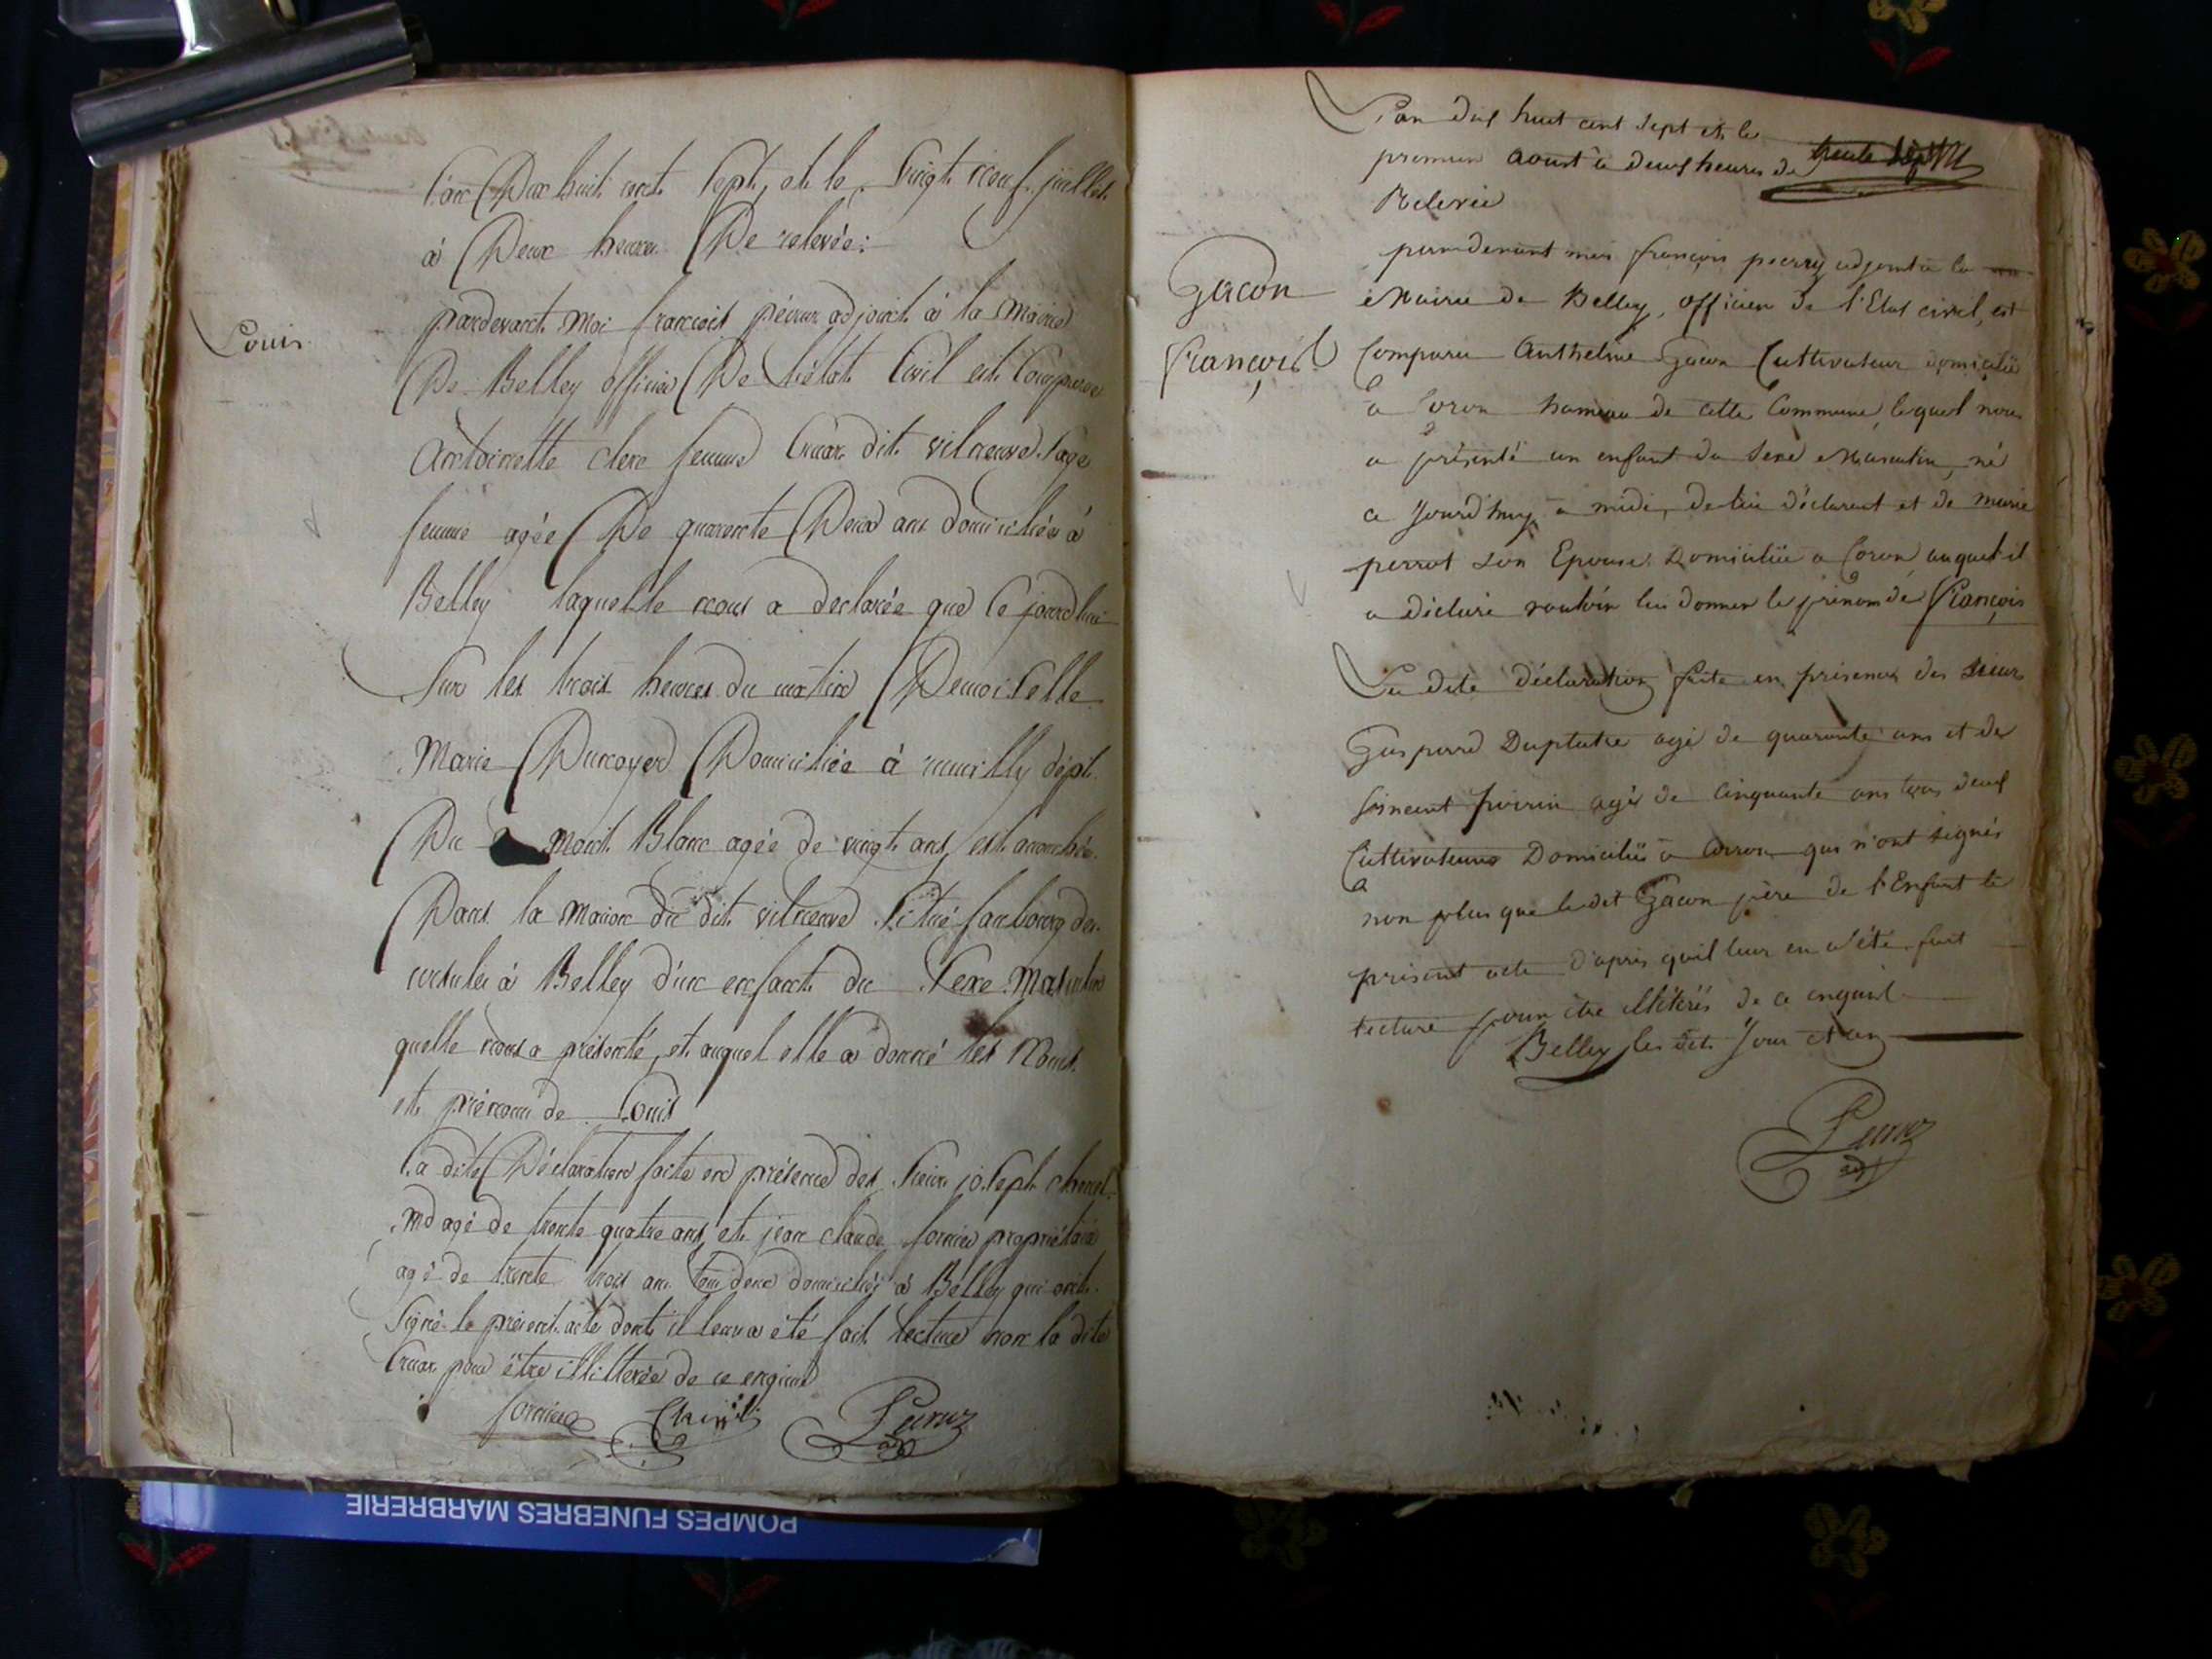 Louis
L'an Dix huit cent Sept, et le Vingt neuf juillet
à Deux heures De relevée:
pardevant Moi francois péruz adjoint à la Mairie
De Belley officier De l'état Civil est Comparue
Antoinette clerc femme Cruar dit vilneuve Sage
femme agée De quarente Deux ans domiciliée à
Belley laquelle nous a declarée que Ce jourdhui
Sur les trois heures du matin Demoiselle
Marie Ducoyer Domiciliée à rumilly dépt.
Du Mont Blanc agée de vingt ans, est accouchée
Dans la Maison du dit vilneuve Situé faubourg des
ursules à Belley d'un enfant du Sexe Masculin
quelle nous a présenté, et auquel elle a donné les Noms
et prénom de Louis
La dite Déclaration faite en présence des Sieurs joseph
Md agé de trente quatre ans, et jean claude fornier propriétaire
agé de trente trois ans tous deux domiciliés à Belley qui ont
Signé le présent acte dont il leur a été fait lecture non la dite
Cruar pour être illitterée de ce enquise
fornier Peruz adj
trente sept
Gacon
françois
L'an dix huit cent sept et le
premier aoust à deux heures de
Relevée
pardevant moi françois péeruz adjoint à la
Mairie de Belley, officier de l'Etat civil, est
Comparu Anthelme Gacon Cultivateur domicilié
a Coron hameau de cette Commune, lequel nous
a présenté un enfant du Sexe Masculin, né
ce jourd'huy à midi, de lui déclarant et de marie
perrot son Epouse Domiciliée a Coron, auquel il
a déclaré vouloir lui donner le prénom de François
La dite déclaration faite en présence des sieurs
Gasparrd Duplatre agé de quarante ans et de
agé de Cinquante ans tous deux
Cultivateurs Domiciliés à Corron qui n'ont signés
non plus que le dit Gacon père de l'Enfant le
présent acte d'après quil leur en a été fait
lecture pour être illétérés de ce enquis
Belley les dits Jour et an
Peruz
adj
POMPES FUNEBRES MARBRERIE